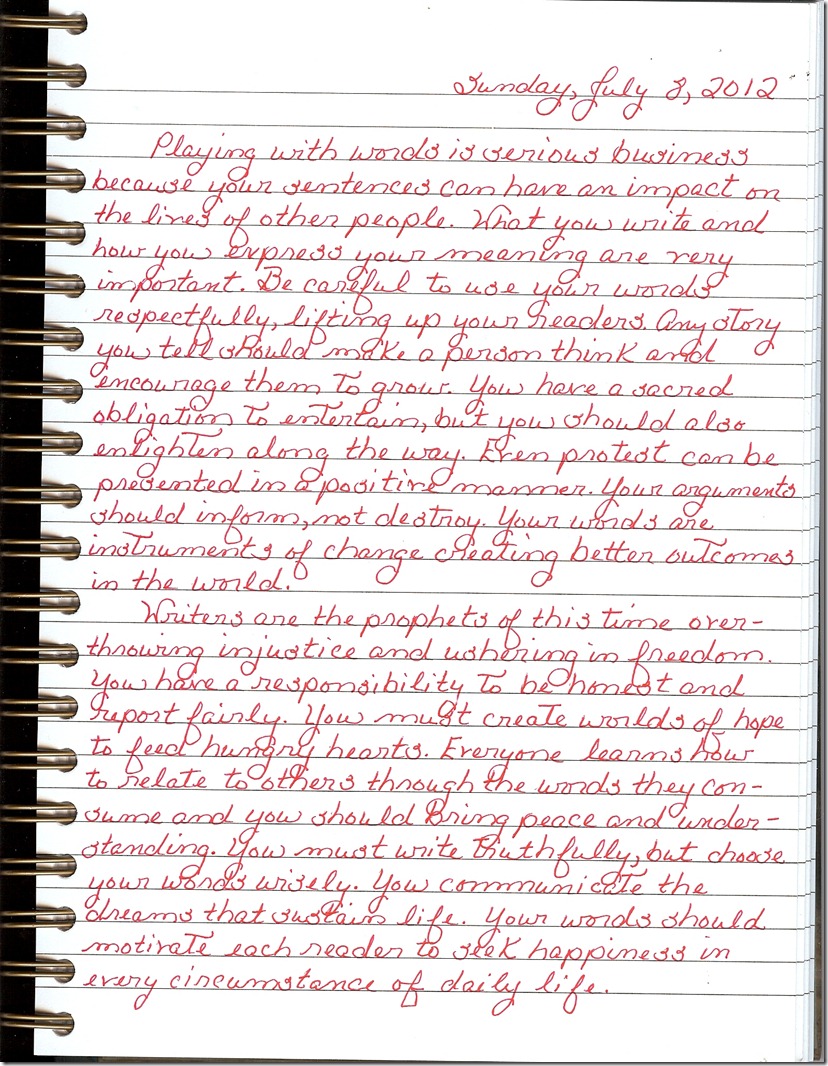 Sunday, July 8, 2012
Playing with words is serious business
because your sentences can have an impact on
the lives of other people. What you write and
how you express your meaning are very
important. Be careful to use your words
respectfully, lifting up your readers. Any story
you tell should make a person think and
encourage them to grow. You have a sacred
obligation to entertain, but you should also
enlighten along the way. Even protest can be
presented in a positive manner. Your arguments
should inform, not destroy. Your words are
instruments of change creating better outcomes
in the world.
Writers are the prophets of this time over-
throwing injustice and ushering in freedom.
You have a responsibility to be honest and
report fairly. You must create worlds of hope
to feed hungry hearts. Everyone learns how
to relate to others through the words they con-
sume and you should bring peace and under-
standing. You must write truthfully, but choose
your words wisely. You communicate the
dreams that sustain life. Your words should
motivate each reader to seek happiness in
every circumstance of daily life.